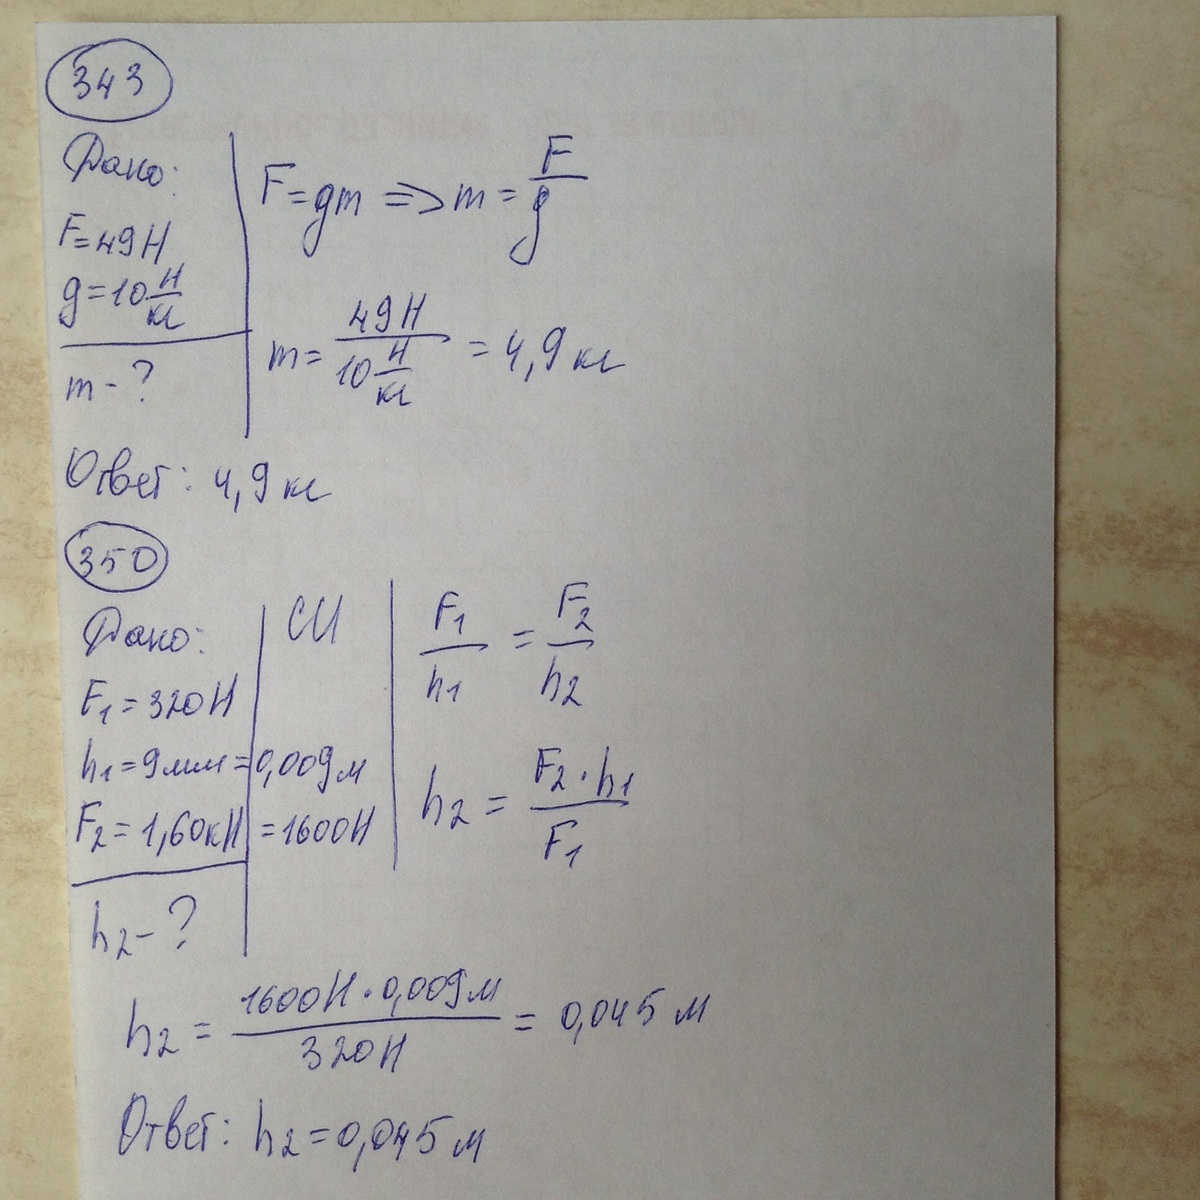 343
Дано:
F = 49 Н
g = 10 Н/кг
m - ?
F = gm => m = F/g
m = 49 Н / 10 Н/кг = 4,9 кг
Ответ: 4,9 кг
350
Дано:
F₁ = 320 Н
h₁ = 9 мм = 0,009 м
F₂ = 1,60 кН = 1600 Н
h₂ - ?
СИ
F₁/h₁ = F₂/h₂
h₂ = F₂ · h₁ / F₁
h₂ = 1600 Н · 0,009 м / 320 Н = 0,045 м
Ответ: h₂ = 0,045 м